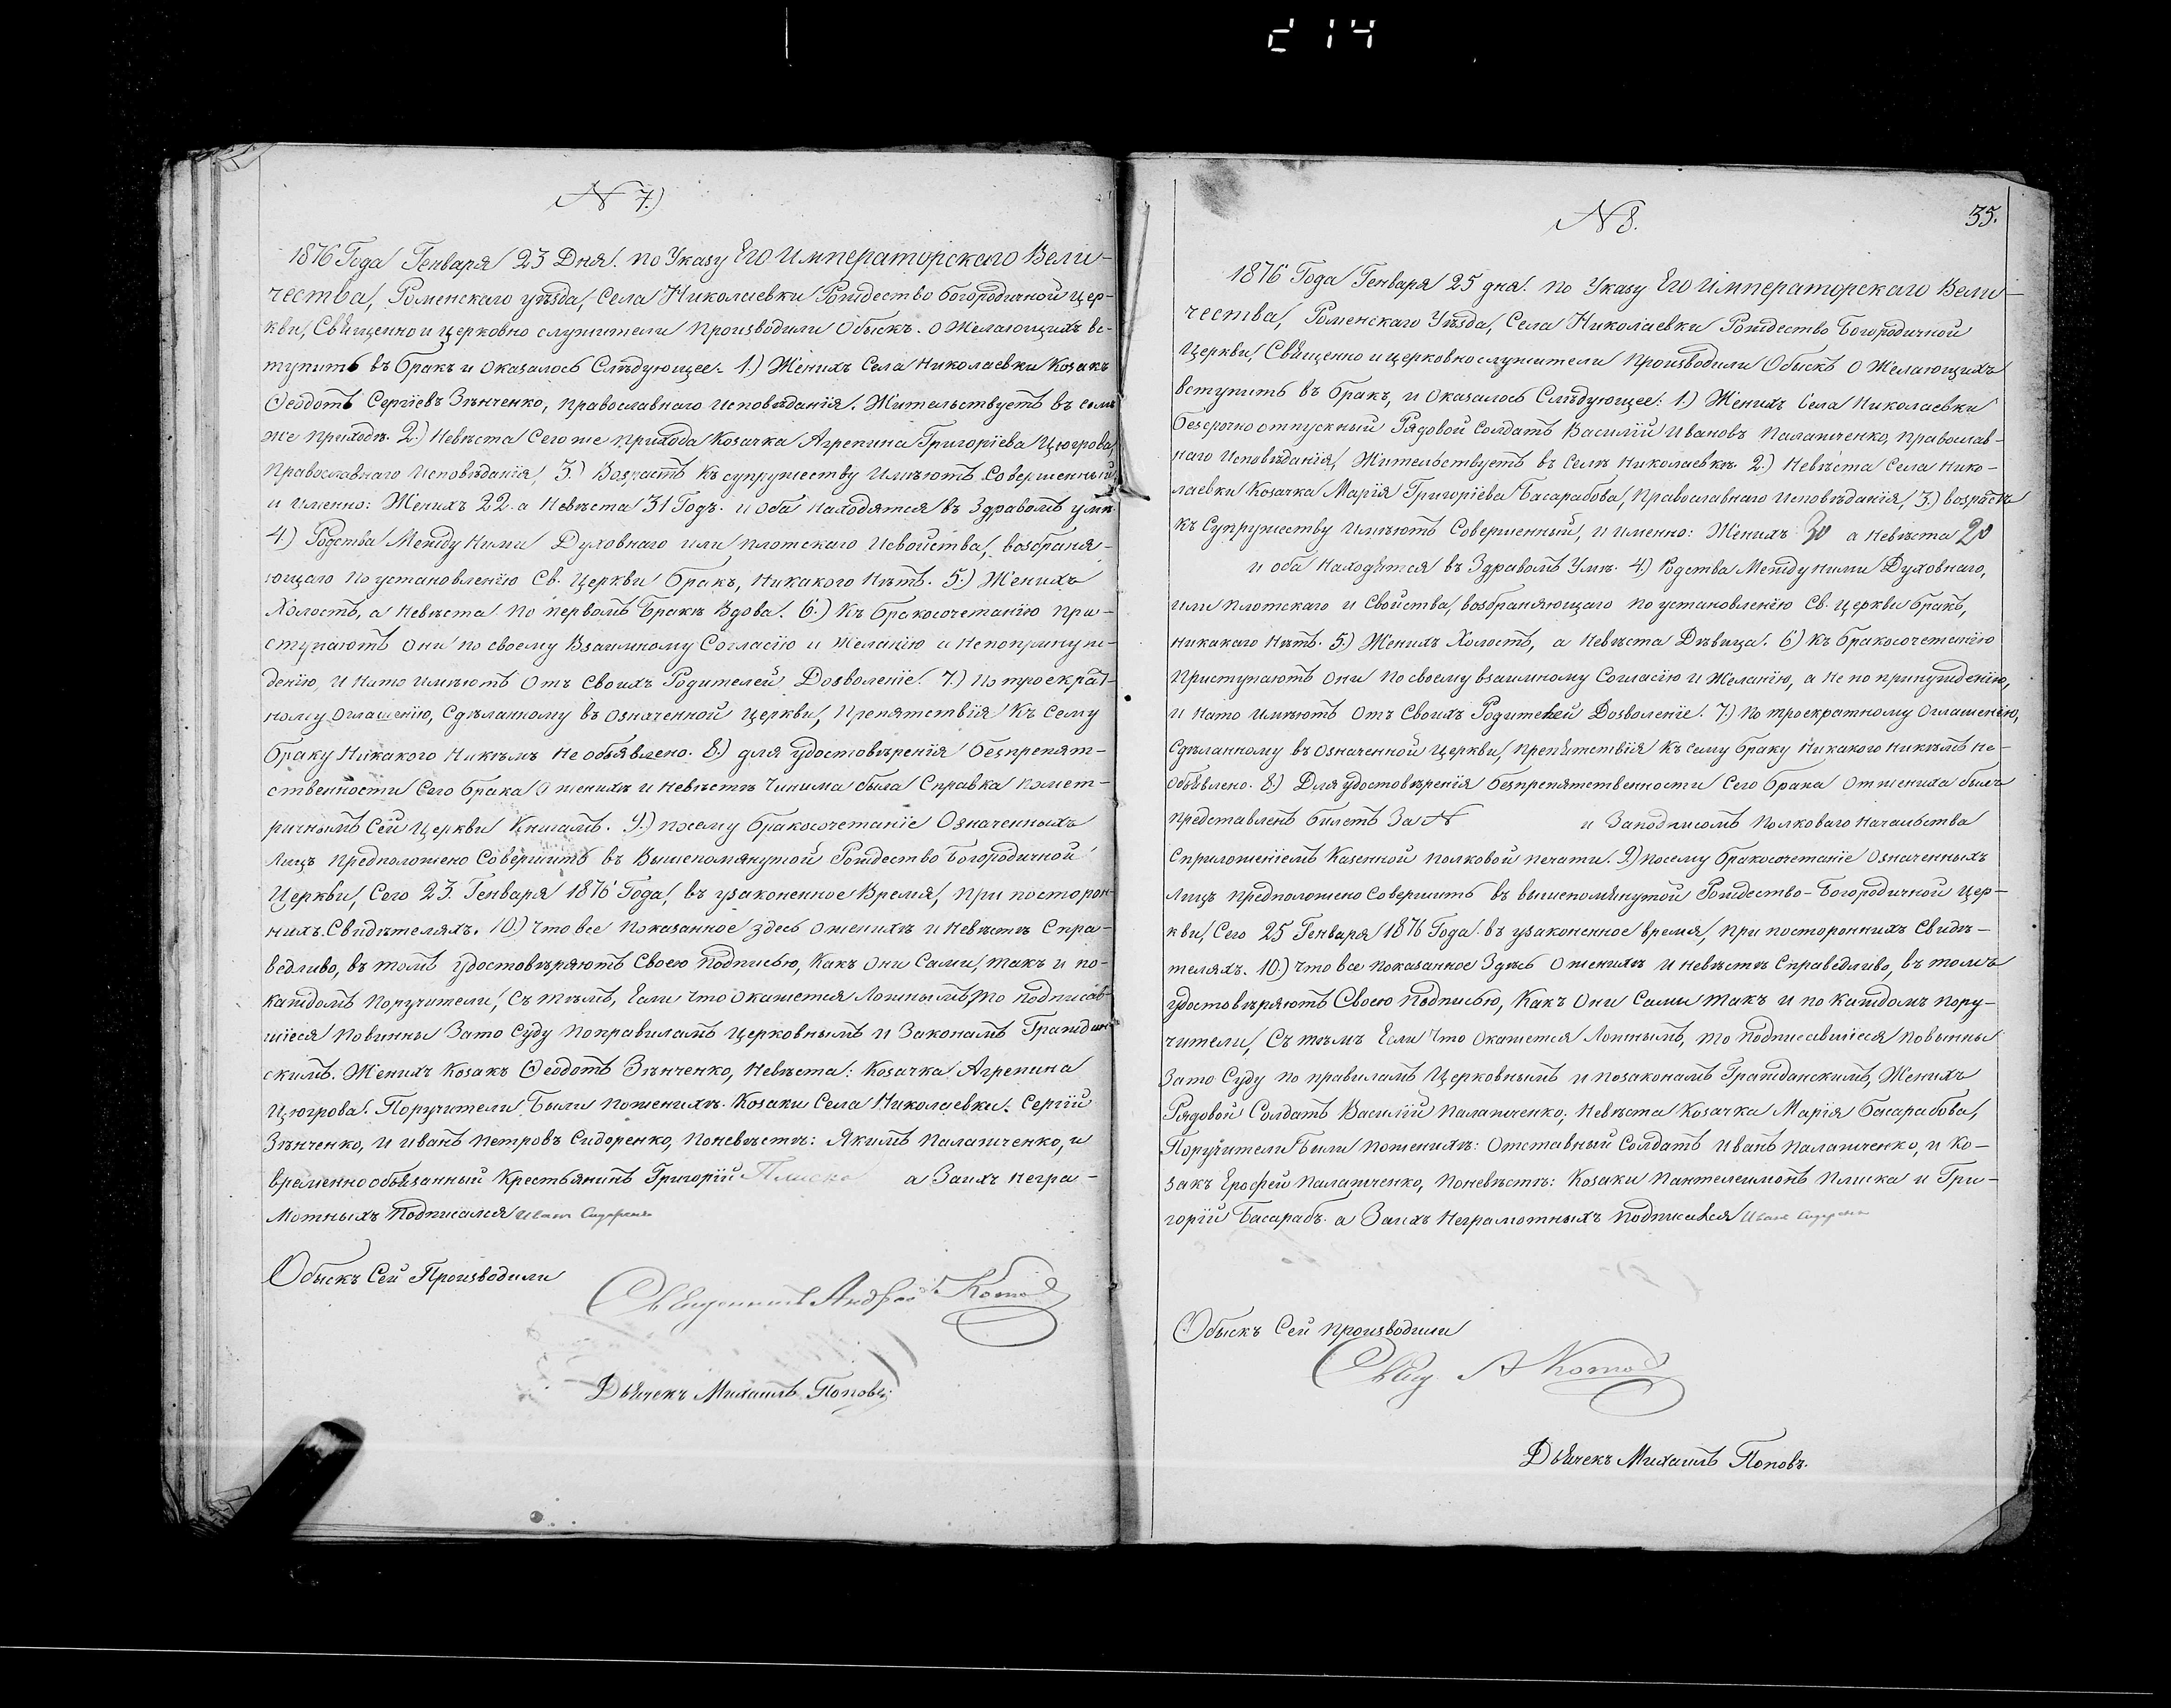 214
N 7.)
1876 Года Генваря 23 Дня. по Указу Его Императорскаго Вели-
чества, Роменскаго уѣзда, Села Николаевки Рождество Богородичной Цер-
кви, Священно и церковно служители производили Обыскъ. о Желающихъ вс-
тупить въ бракъ и оказалось Слѣдующее. 1.) Женихъ Села Николаевки Козакъ
Ѳеодотъ Сергіевъ Зѣнченко, православнаго исповѣданія. Жительствуетъ въ семъ
же приходѣ. 2.) Невѣста Сего же прихода Козачка Агрепина Григоріева Цюгрова,
Православнаго Исповѣданія, 3.) Возрастъ къ супружеству Имѣютъ Совершенный
и именно: Женихъ 22. а Невѣста 31 Годъ. и оба находятся въ Здравомъ умѣ.
4.) Родства Между Ними Духовнаго или плотскаго Исвойства, возбраня-
ющаго по установленію Св. Церкви бракъ, Никакого Нѣтъ. 5.) Женихъ
Холостъ, а Невѣста по первомъ Бракѣ Вдова. 6.) Къ бракосочетанію при-
ступаютъ они по своему Взаимному Согласію и Желанію и Непопринуж-
денію, И Нато имѣютъ Отъ Своихъ Родителей Дозволеніе. 7.) По троекрат-
ному оглашенію, Сдѣланному въ означенной церкви, Препятствія Къ Сему
браку Никакого Никѣмъ Не объявлено. 8.) для удостовѣренія безпрепят-
ственности Сего брака О женихѣ и невѣстѣ Чинима была Справка помет-
ричнымъ Сей Церкви Книгамъ. 9.) посему бракосочетаніе Означенныхъ
Лицъ предположено Совершить въ Вышепомянутой Рождество Богородичной
Церкви, Сего 23. Генваря 1876 Года, въ узаконенное Время, при посторон-
нихъ Свидѣтеляхъ. 10.) Что все показанное здесь о женихѣ и Невѣстѣ Спра-
ведливо, въ томъ удостовѣряютъ Своею подписью, Какъ они Сами, такъ и по-
каждомъ поручители, Съ тѣмъ, Если Что окажется Ложнымъ, то подписав-
шіеся повинны Зато Суду поправиламъ церковнымъ и Законамъ Граждан-
скимъ. Женихъ Козакъ Ѳеодотъ Зѣнченко, Невѣста: Козачка Агрепина
Цюгрова. Поручители Были поженихѣ. Козаки Села Николаевки. Сергій
Зѣнченко, и иванъ петровъ Сидоренко, поневѣстѣ: Якимъ Палапченко, и
временно обязанный Крестьянинъ Григорій Плиска а Заихъ Негра-
мотныхъ подписался Иванъ Сидоренко
Обыскъ Сей Производили
Священникъ Андрей Котов
Дьячекъ Михаилъ Поповъ.
N 8.
35.
1876 Года Генваря 25 дня. по Указу Его Императорскаго Вели-
чества, Роменскаго Уѣзда, Села Николаевки Рождество Богородичной
Церкви, Священно и церковнослужители производили Обыскъ о Желающихъ
вступить въ бракъ, и оказалось Слѣдующее: 1.) Женихъ Села Николаевки
безсрочно отпускный Рядовой Солдатъ Василій Ивановъ Палапченко, православ-
наго Исповѣданія, Жительствуетъ въ Селѣ Николаевкѣ. 2.) Невѣста Села Нико-
лаевки Козачка Марія Григоріева Басарабова, Православнаго Исповѣданія, 3.) возрастъ
къ Супружеству Имѣютъ Совершенный, и именно: Женихъ 30 а Невѣста 20
и оба Находятся въ Здравомъ Умѣ. 4.) Родства Между ними Духовнаго,
или плотскаго и Свойства, возбраняющаго по установленію Св. Церкви бракъ,
никакаго Нѣтъ. 5.) Женихъ Холостъ, а Невѣста Дѣвица. 6) Къ бракосочетанію
Приступаютъ Они По своему взаимному Согласію и Желанію, а не по принужденію,
и Нато имѣютъ Отъ Своихъ Родителей Дозволеніе. 7.) По троекратному Оглашенію,
Сдѣланному въ Означенной Церкви, препятствія Къ сему браку Никакого никѣмъ не-
объявлено. 8.) Для удостовѣренія безпрепятственности Сего брака Отжениха былъ
представленъ билетъ За N и Заподписомъ полковаго Начальства
Сприложеніемъ Казенной полковой печати. 9.) посему бракосочетаніе Означенныхъ
Лицъ предположено Совершить въ вышепомянутой Рождество-Богородичной Цер-
кви, Сего 25 Генваря 1876 Года. въ узаконенное время, при постороннихъ Свидѣ-
теляхъ. 10.) что все показанное Здѣсь о женихѣ и невѣстѣ Справедливо, въ томъ
удостовѣряютъ Своею подписью, Какъ Они Сами такъ и по каждомъ пору-
чители, Съ тѣмъ Если Что окажется Ложнымъ, то подписавшіеся повынны
Зато Суду по правиламъ Церковнымъ и позаконамъ Гражданскимъ, Женихъ
Рядовой Солдатъ Василій Палапченко; Невѣста Козачка Марія Басарабова,
Поручители Были поженихѣ: Отставный Солдатъ иванъ Палапченко, и Ко-
закъ Ерофей Палапченко, поневѣстѣ: Козаки Пантелеимонъ Плиска и Гри-
горій Басарабъ. а Заихъ Неграмотныхъ подписался Иванъ Сидоренко
Обыскъ Сей производили
Свящ А Котов
Дьячекъ Михаилъ Поповъ.